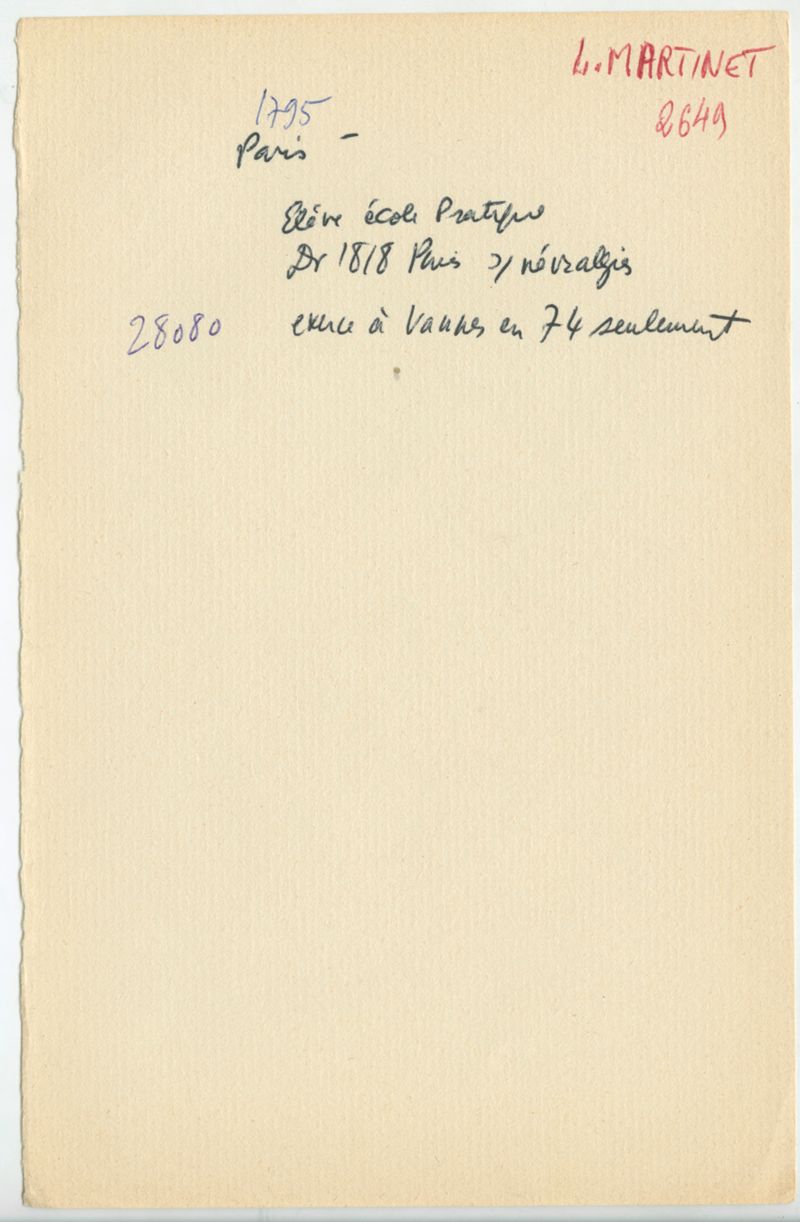 L. MARTINET
2649
1795
Paris -
Elève école Pratique
Dr 1818 Paris s/ névralgies
28080 exerce à Vannes en 74 seulement